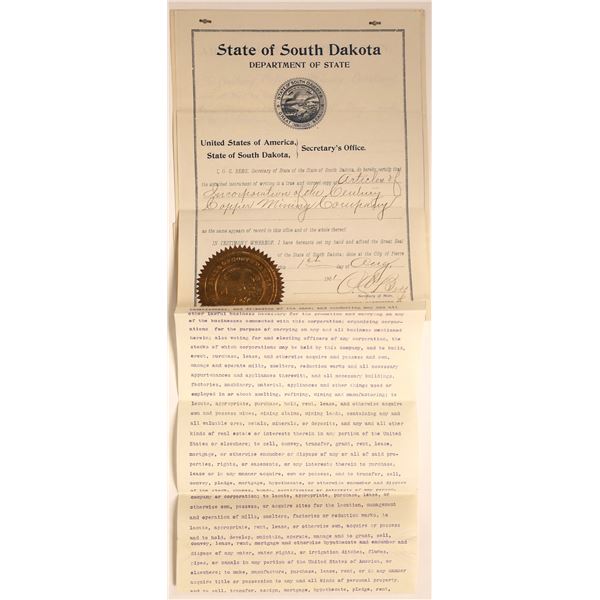 State of South Dakota
DEPARTMENT OF STATE
United States of America,
State of South Dakota,
Secretary's Office.
I, O. C. BERG, Secretary of State of the State of South Dakota, do hereby certify that
the attached instrument of writing is a true and correct copy of Articles of
Incorporation of the Century
Copper Mining Company
as the same appears of record in this office and of the whole thereof.
IN TESTIMONY WHEREOF, I have hereunto set my hand and affixed the Great Seal
of the State of South Dakota; done at the City of Pierre
this 1st day of Aug
Secretary of State.
other lawful business necessary for the promotion and carrying on any
of the businesses connected with this corporation; organizing corpora-
tions for the purpose of carrying on any and all business mentioned
herein; also voting for and electing officers of any corporation, the
stocks of which corporations may be held by this company, and to build,
erect, purchase, lease, and otherwise acquire and possess and own,
manage and operate mills, smelters, reduction works and all necessary
appurtenances and appliances therewith, and all necessary buildings,
factories, machinery, material, appliances and other things used or
employed in or about smelting, refining, mining and manufacturing; to
locate, appropriate, purchase, hold, rent, lease, and otherwise acquire
own and possess mines, mining claims, mining lands, containing any and
all valuable ores, metals, minerals, or deposits, and any and all other
kinds of real estate or interests therein in any portion of the United
States or elsewhere; to sell, convey, transfer, grant, rent, lease,
mortgage, or otherwise encumber or dispose of any or all of said pro-
perties, rights, or easements, or any interests therein to purchase,
lease or in any manner acquire, own or possess, and to transfer, sell,
convey, pledge, mortgage, hypothecate, or otherwise encumber and dispose
company or corporation; to locate, appropriate, purchase, lease, or
otherwise own, possess, or acquire sites for the location, management
and operation of mills, smelters, factories or reduction works; to
locate, appropriate, rent, lease, or otherwise own, acquire or possess
and to hold, develop, maintain, operate, manage and to grant, sell,
convey, lease, rent, mortgage and otherwise hypothecate and encumber and
dispose of any water, water rights, or irrigation ditches, flumes,
pipes, or canals in any portion of the United States of America, or
elsewhere; to make, manufacture, purchase, lease, rent, or in any manner
acquire title or possession to any and all kinds of personal property,
and to sell, transfer, assign, mortgage, hypothecate, pledge, rent,